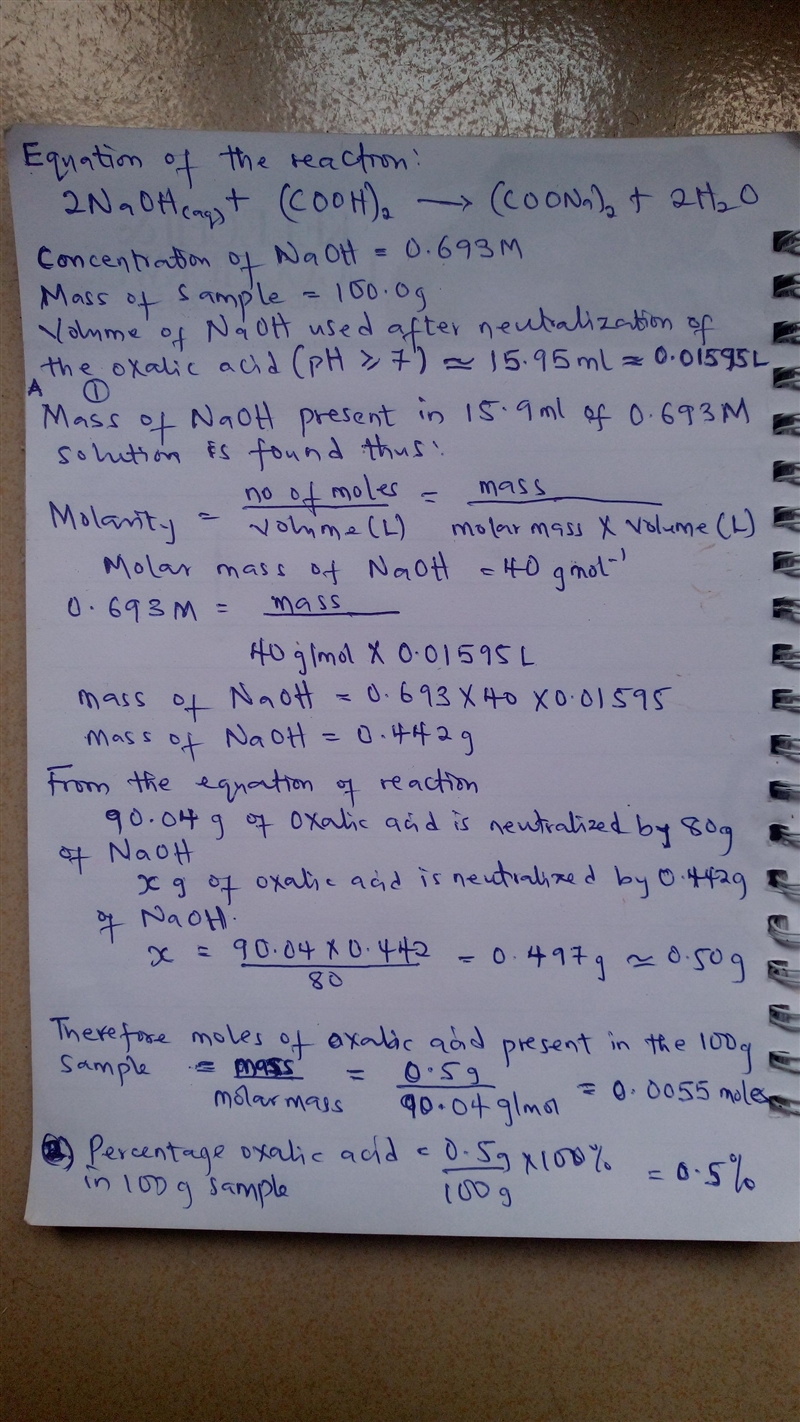 Equation of the reaction:
2NaOH(aq) + (COOH)₂ → (COONa)₂ + 2H₂O
Concentration of NaOH = 0.693M
Mass of sample = 100.0g
Volume of NaOH used after neutralization of
the oxalic acid (pH ≥ 7) ≃ 15.95ml ≃ 0.01595L
A ①
Mass of NaOH present in 15.9ml of 0.693M
solution is found thus:
Molarity = no of moles / volume (L) = mass / molar mass X volume (L)
Molar mass of NaOH = 40 gmol⁻¹
0.693M = mass / 40g/mol X 0.01595L
mass of NaOH = 0.693 X 40 X 0.01595
mass of NaOH = 0.442g
From the equation of reaction
90.04 g of oxalic acid is neutralized by 80g
of NaOH
x g of oxalic acid is neutralized by 0.442g
of NaOH.
x = 90.04 X 0.442 / 80 = 0.497g ≃ 0.50g
Therefore moles of oxalic acid present in the 100g
sample = mass / molar mass = 0.5g / 90.04g/mol = 0.0055 moles
Percentage oxalic acid = 0.5g / 100g X 100% = 0.5%
in 100g sample